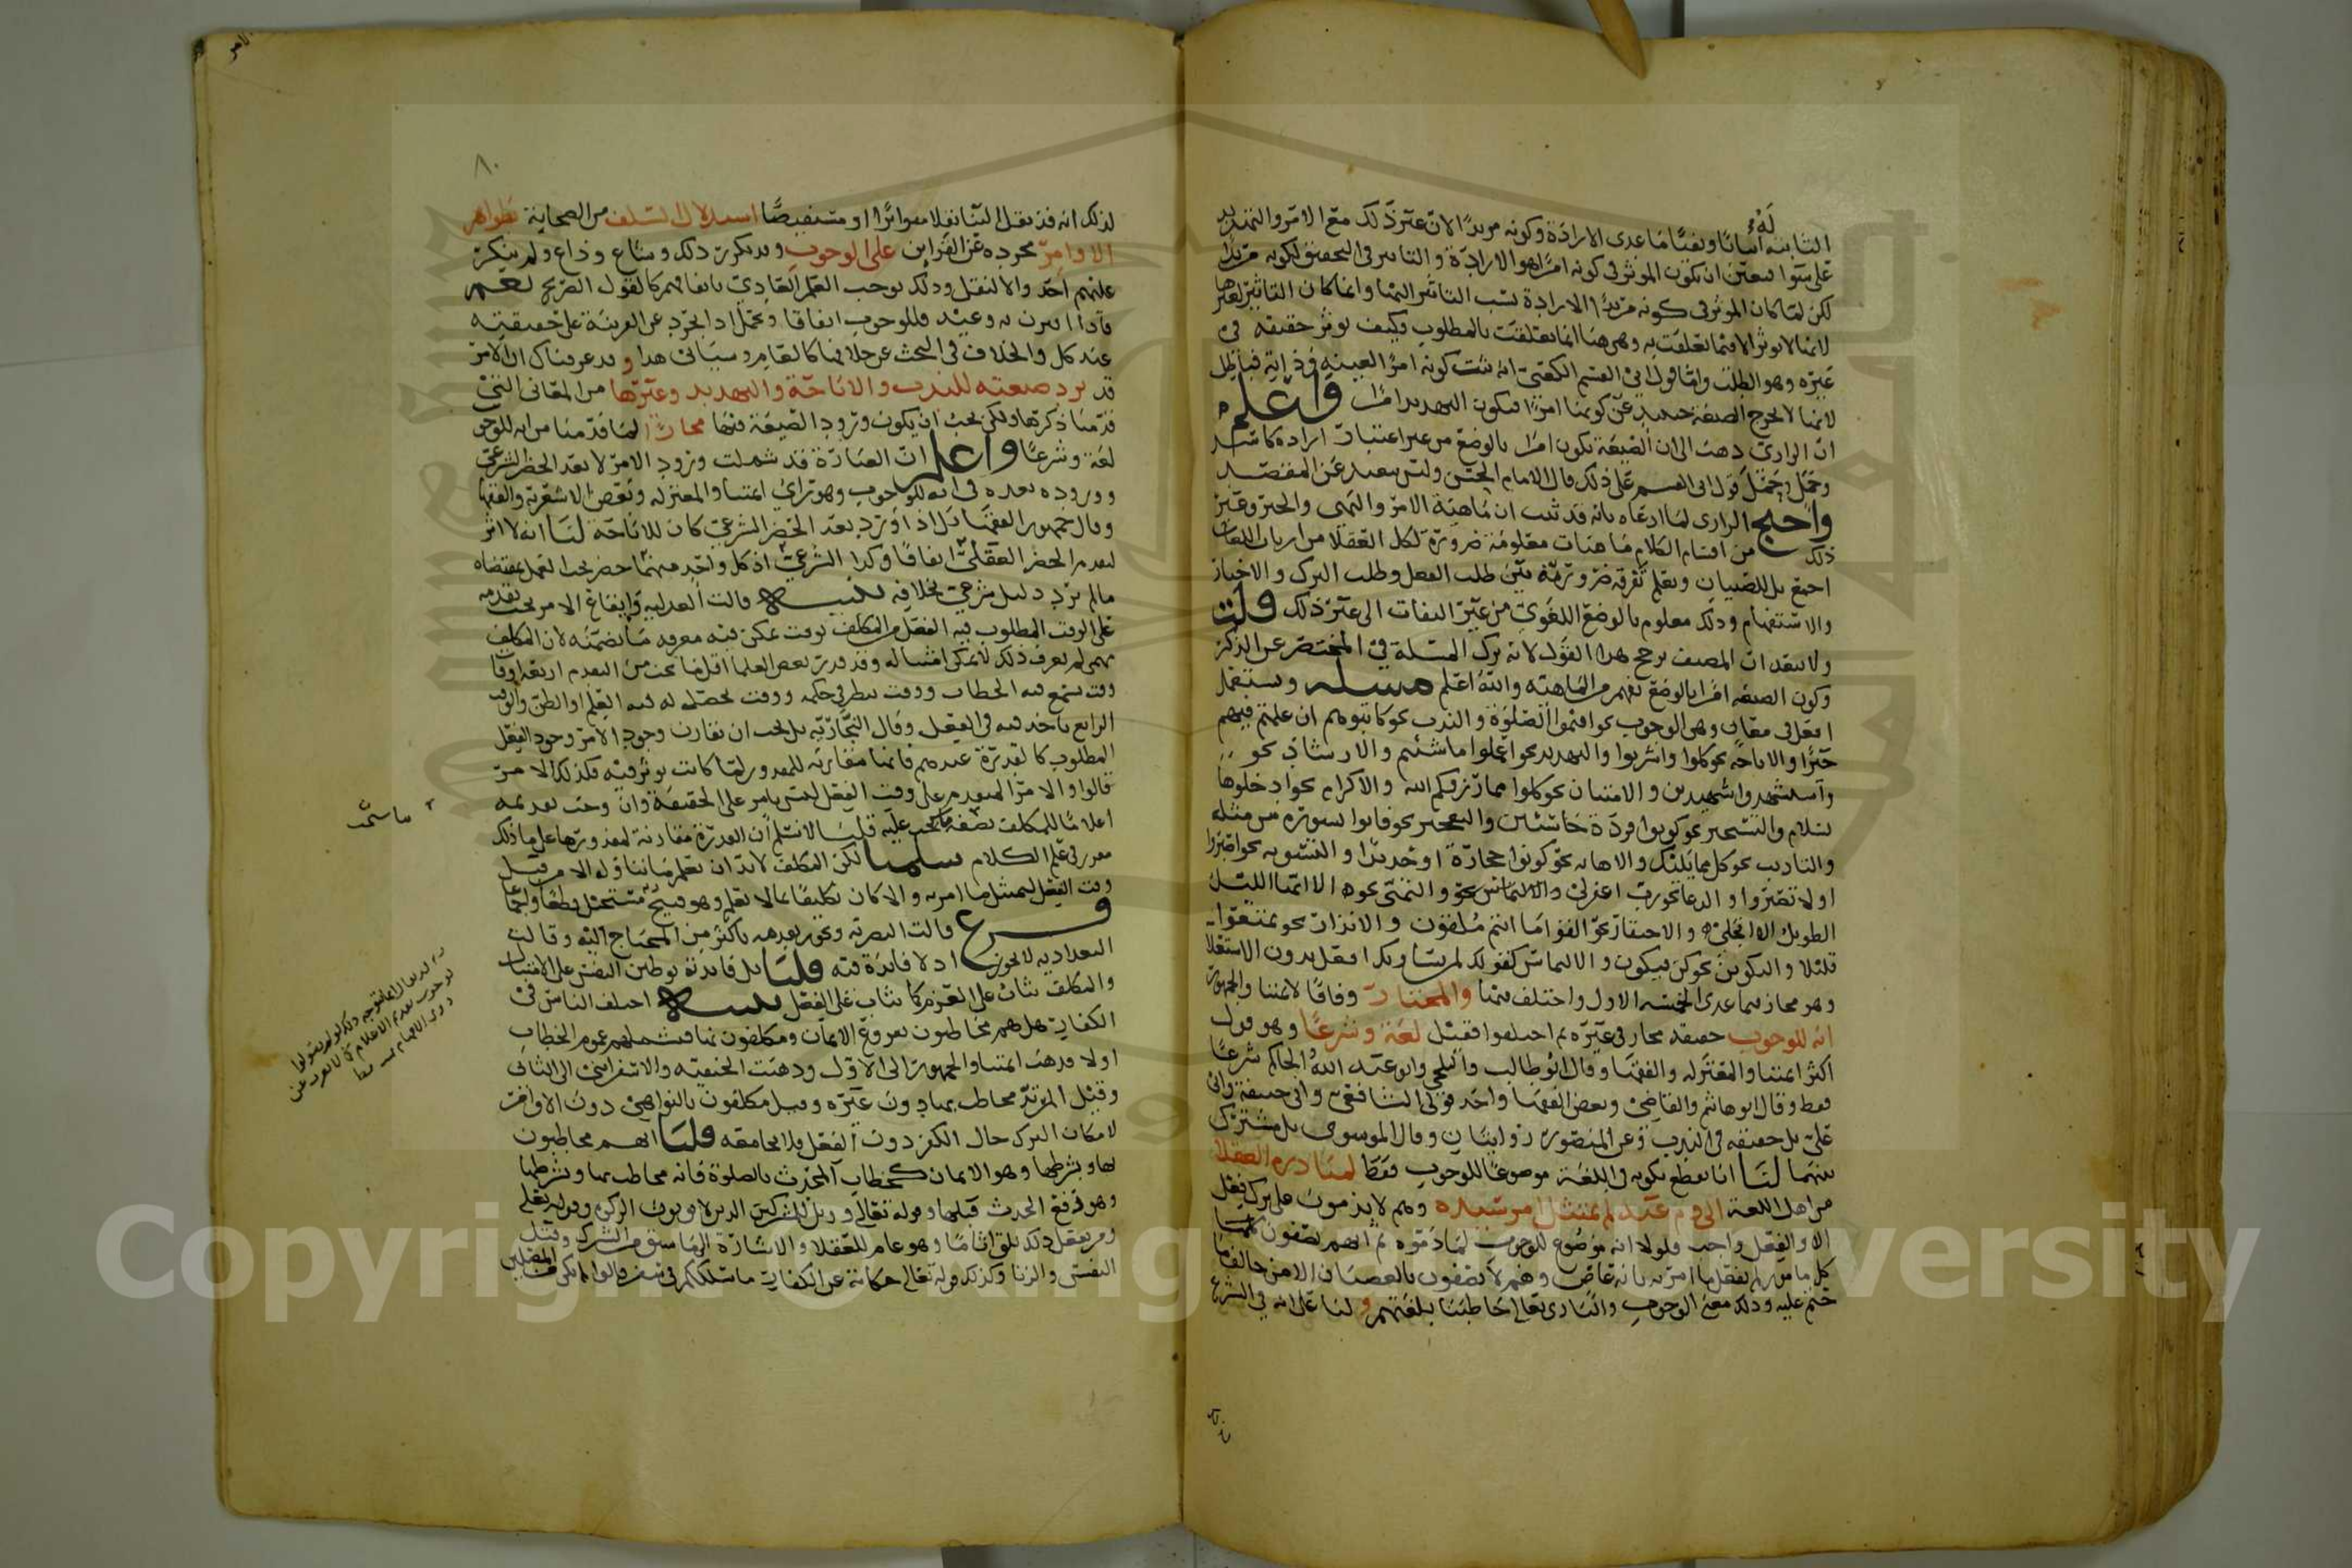 الثابتة له اثباتا ونفيا ما عدى الارادة وكونه مريدا لان غير ذلك مع الامر والتهديد
على سوا فتعين ان يكون الموثر في كونه امرا هو الارادة والتاثير في التحقيق لكونه مريدا
لكن لما كان الموثر في كونه مريدا الارادة نسب التاثير اليها وانما كان التاثير لغيرها
لانها لا توثر الا فيما تعلقت به وهي هنا انما تعلقت بالمطلوب وكيف توثر حقيقة في
غيره وهو الطلب واما قول ابي القسم الكعبي انه ثبت كونه امرا لعينه وذاته فباطل
لانها لا تخرج الصيغة حينئذ عن كونها امرا فيكون التهديد امرا واعلم
ان الرازي ذهب الى ان الصيغة تكون امرا بالوضع من غير اعتبار ارادة كاسد
وحمل قول ابي القسم على ذلك قال الامام الحسن وليس ببعيد عن المقصد
واحتج الرازي لما ادعاه بانه قد ثبت ان ماهية الامر والنهي والخبر وغير
ذلك من اقسام الكلام ماهيات معلومة ضرورة لكل العقلا من ارباب اللغات
اجمع بل للصبيان ويعلم تفرقة ضرورية بين طلب الفعل وطلب الترك والاخبار
والاستفهام وذلك معلوم بالوضع اللغوي من غير التفات الى غير ذلك قلت
ولا يبعد ان المصنف يرجح هذا القول لانه ترك المسلة في المختصر عن الذكر
وكون الصيغة امرا بالوضع تفهم من الماهية والله اعلم مسلة وتستعمل
افعل في معان وهي الوجوب نحو اقيموا الصلوة والندب نحو كاتبوهم ان علمتم فيهم
خيرا والاباحة نحو كلوا واشربوا والتهديد نحو اعملوا ما شئتم والارشاد نحو
واستشهدوا شهيدين والامتنان نحو كلوا مما رزقكم الله والاكرام نحو ادخلوها
بسلام والتسخير نحو كونوا قردة خاسئين والتعجيز نحو فاتوا بسورة من مثله
والتاديب نحو كل مما يليك والاهانه نحو كونوا حجارة او حديدا والتسوية نحو اصبروا
او لا تصبروا والدعا نحو رب اغفر لي والتمني نحو الا ايها الليل
الطويل الا انجلي والاحتقار نحو القوا ما انتم ملقون والانذار نحو تمتعوا
قليلا والتكوين نحو كن فيكون والالتماس كقولك لمن يساويك افعل بدون الاستعلا
وهو مجاز فيما عدى الخمسة الاول واختلف فيها والمختار وفاقا لائمتنا والجمهور
انه للوجوب حقيقة مجاز في غيره ثم اختلفوا فقيل لغة وشرعا وهو قول
اكثر ائمتنا والمعتزله والفقها وقال ابو طالب والبلخي وابو عبد الله والحاكم شرعا
فقط وقال ابو هاشم والقاضي وبعض الفقها واحد قولي الشافعي وابي حنيفة وابي
علي بل حقيقة في الندب وعن المنصور روايتان وقال الموسوي بل مشترك
بينهما لنا انا نقطع بكونه في اللغة موضوعا للوجوب فقط لمبادرة العقلا
من اهل اللغة الى ذم عبد لم يمتثل امر سيده وهم لا يذمون على ترك فعل
الا والفعل واجب فلولا انه موضوع للوجوب لما ذموه ثم انهم يصفون كلهم
كل مامور لم يفعل ما امر به بانه عاص وهم لا يصفون بالعصيان الا من خالف ما
حتم عليه وذلك معنى الوجوب والباري تعالى خاطبنا بلغتهم ولنا على انه في الشرع
٨٠
لذلك انه قد نقل الينا نقلا متواترا او مستفيضا استدلال السلف من الصحابة بظواهر
الاوامر مجرده عن القراين على الوجوب وتكرر ذلك وشاع وذاع ولم ينكر
عليهم احد والا لنقل وذلك يوجب العلم العادي باتفاقهم كالقول الصريح نعم
فاذا اقترن به وعيد فللوجوب اتفاقا ويحمل اذا تجرد عن القرينة على حقيقته
عند كل والخلاف في البحث عن خلافها كالعام وسياتي هذا وقد عرفناك ان الامر
قد ترد صيغته للندب والاباحة والتهديد وغيرها من المعاني التي
قدمنا ذكرها ولكن يجب ان يكون ورود الصيغة فيها مجازا لما قدمنا من انه للوجوب
لغة وشرعا واعلم ان العبارة قد شملت ورود الامر لا بعد الحظر الشرعي
ووروده بعده في انه للوجوب وهو راي ائمتنا والمعتزله وبعض الاشعرية والفقها
وقال جمهور الفقها بل اذا ورد بعد الحظر الشرعي كان للاباحة لنا انه لا اثر
لتقدم الحظر العقلي اتفاقا وكذا الشرعي اذ كل واحد منهما حظر يجب العمل بمقتضاه
ما لم يرد دليل شرعي بخلافه تنبيه قالت العدلية وايقاع الامر يجب تقدمه
على الوقت المطلوب فيه الفعل من المكلف بوقت يمكن فيه معرفه ما تضمنه لان المكلف
متى لم يعرف ذلك لا يمكن امتثاله وقد قدر بعض العلما اقل ما يجب من التقدم اربعة اوقات
وقت يسمع فيه الخطاب ووقت ينظر في حكمه ووقت يحصل له فيه العلم او الظن والوقت
الرابع ياخذ فيه في الفعل وقال النجارية بل يجب ان تقارن وجود الامر وجود الفعل
المطلوب كالقدرة عندهم فانها مقارنه للمقدور لما كانت توثر فيه فكذلك الامر
قالوا والامر المتقدم على وقت الفعل ليس بامر على الحقيقة وان وجب تقديمه
اعلاما للمكلف بصفة ما يجب عليه قلنا لا نسلم ان القدرة مقارنة لمقدورها على ما ذلك
مقرر في علم الكلام سلمنا لكن المكلف لا بد ان يعلم ما يتناوله الامر قبل
وقت الفعل ليمتثل ما امر به والا كان تكليفا بما لا يعلم وهو قبيح مستحيل قطعا واجماعا
فرع قالت البصرية ويجوز تقديمه باكثر من المحتاج اليه وقالت
البغدادية لا يجوز اذ لا فائدة فيه قلنا بل فايدته توطين النفس على الامتثال
والمكلف يثاب على العزم كما يثاب على الفعل تنبيه اختلف الناس في
الكفار هل هم مخاطبون بفروع الايمان ومكلفون بها فشملهم عموم الخطاب
او لا فذهب ائمتنا والجمهور الى الاول وذهبت الحنفية والاسفرايني الى الثاني
وقيل المرتد مخاطب بها دون غيره وقيل مكلفون بالنواهي دون الاوامر
لامكان الترك حال الكفر دون الفعل فلا يجامعه قلنا انهم مخاطبون
بها وبشرطها وهو الايمان كخطاب المحدث بالصلوة فانه مخاطب بها وبشرطها
وهو رفع الحدث قبلها وقوله تعالى وويل للمشركين الذين لا يوتون الزكوة وقوله تعالى
ومن يفعل ذلك يلق اثاما وهو عام للعقلا والاشارة الى ما سبق من الشرك وقتل
النفس والزنا وكذلك قوله تعالى حكاية عن الكفار ما سلككم في سقر قالوا لم نك من المصلين
Copyright © King University